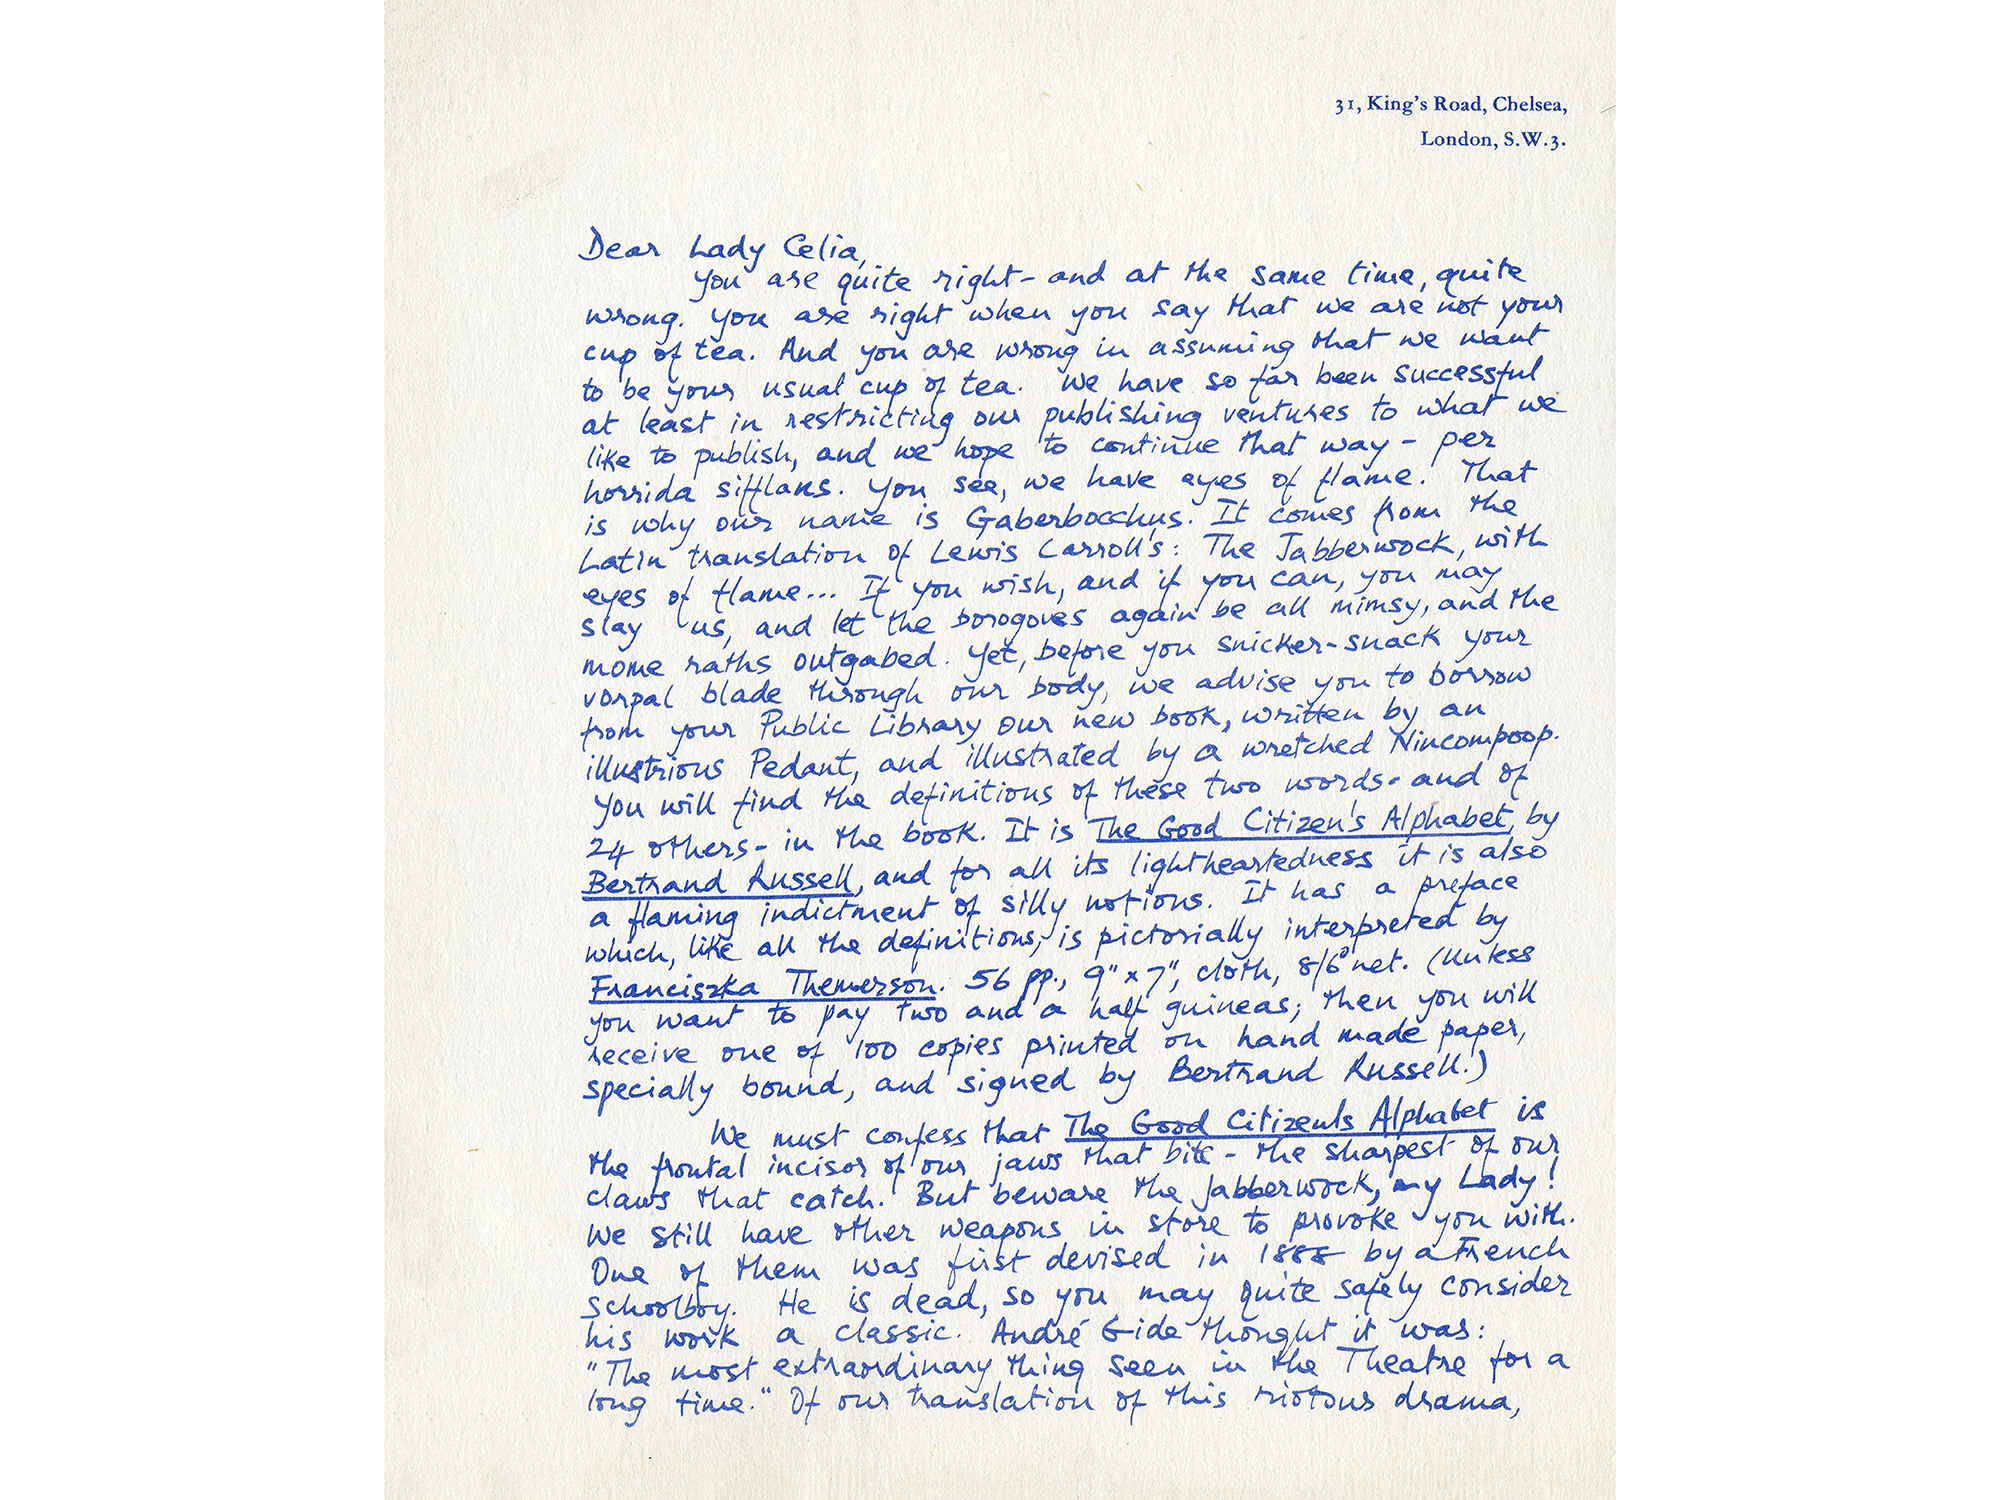 31, King's Road, Chelsea,
London, S.W.3.
Dear Lady Celia,
You are quite right - and at the same time, quite
wrong. You are right when you say that we are not your
cup of tea. And you are wrong in assuming that we want
to be your usual cup of tea. We have so far been successful
at least in restricting our publishing ventures to what we
like to publish, and we hope to continue that way - per
horrida sifflans. You see, we have eyes of flame. That
is why our name is Gaberbocchus. It comes from the
Latin translation of Lewis Carroll's: The Jabberwock, with
eyes of flame... If you wish, and if you can, you may
slay us, and let the borogoves again be all mimsy, and the
mome raths outgabed. Yet, before you snicker-snack your
vorpal blade through our body, we advise you to borrow
from your Public Library our new book, written by an
illustrious Pedant, and illustrated by a wretched Nincompoop.
You will find the definitions of these two words - and of
24 others - in the book. It is The Good Citizen's Alphabet, by
Bertrand Russell, and for all its lightheartedness it is also
a flaming indictment of silly notions. It has a preface
which, like all the definitions, is pictorially interpreted by
Franciszka Themerson. 56 pp., 9" x 7", cloth, 8/6 net. (Unless
you want to pay two and a half guineas; then you will
receive one of 100 copies printed on hand made paper,
specially bound, and signed by Bertrand Russell.)
We must confess that The Good Citizen's Alphabet is
the frontal incisor of our jaws that bite - the sharpest of our
claws that catch. But beware the Jabberwock, my Lady!
We still have other weapons in store to provoke you with.
One of them was first devised in 1888 by a French
Schoolboy. He is dead, so you may quite safely consider
his work a classic. André Gide thought it was:
"The most extraordinary thing seen in the Theatre for a
long time." Of our translation of this riotous drama,